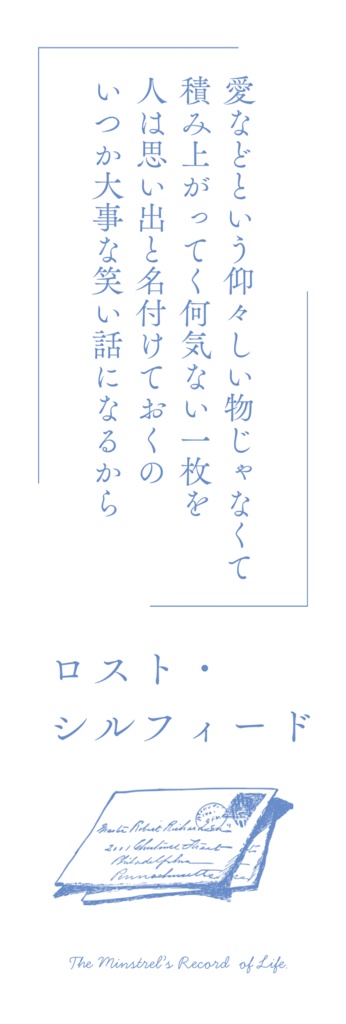 愛などという仰々しい物じゃなくて
積み上がってく何気ない一枚を
人は思い出と名付けておくの
いつか大事な笑い話になるから
ロスト・
シルフィード
Master Robert Richardson
2001 Chestnut Street
Philadelphia
Pennsylvania
The Minstrel's Record of Life.